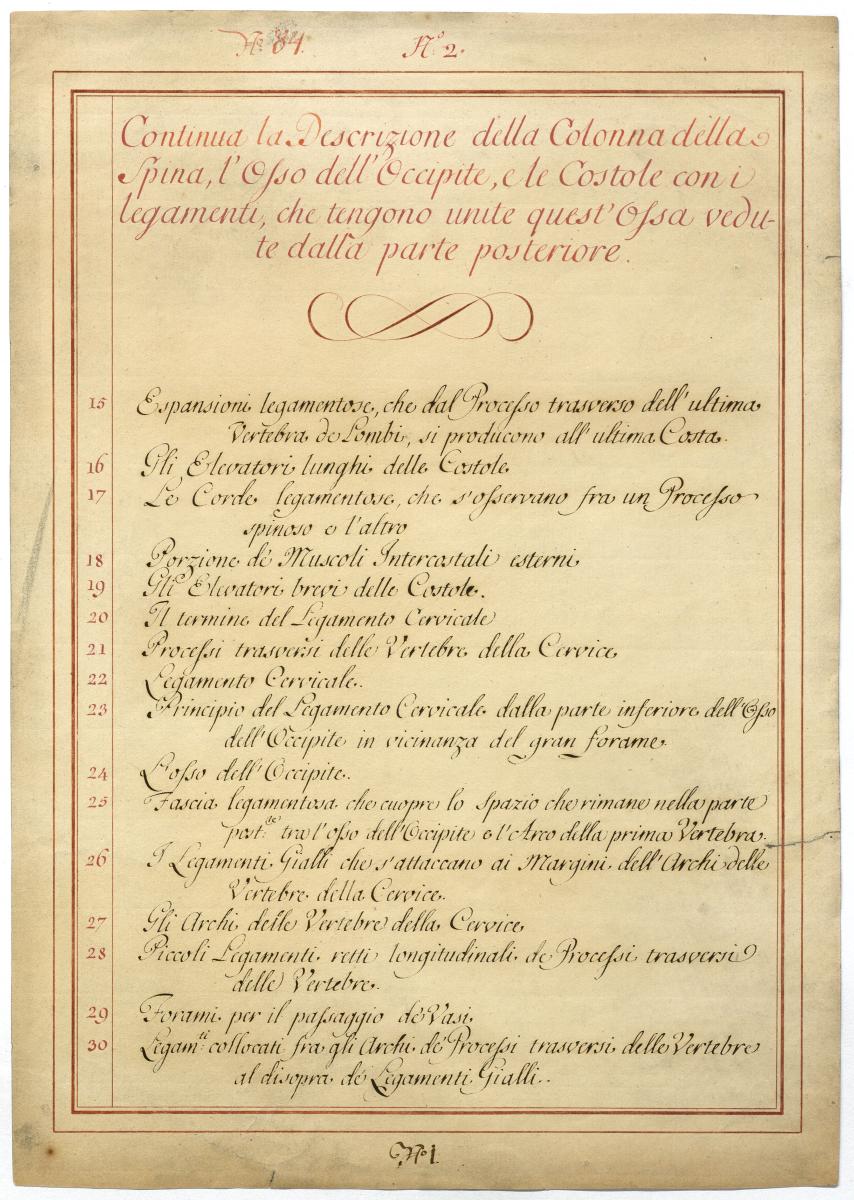 N.º 84. N.º 2.
Continua la Descrizione della Colonna della
Spina, l'Osso dell'Occipite, e le Costole con i
legamenti, che tengono unite quest'Ossa vedu-
te dalla parte posteriore.
15 Espansioni legamentose, che dal Processo trasverso dell'ultima
Vertebra de Lombi, si producono all'ultima Costa.
16 Gli Elevatori lunghi delle Costole
17 Le Corde legamentose, che s'osservano fra un Processo
spinoso e l'altro
18 Porzione de' Muscoli Intercostali esterni
19 Gli Elevatori brevi delle Costole.
20 Il termine del Legamento Cervicale
21 Processi trasversi delle Vertebre della Cervice
22 Legamento Cervicale.
23 Principio del Legamento Cervicale dalla parte inferiore dell'Osso
dell'Occipite in vicinanza del gran forame.
24 L'osso dell'Occipite.
25 Fascia legamentosa che cuopre lo spazio che rimane nella parte
post.de tra l'osso dell'Occipite e l'Arco della prima Vertebra.
26 I Legamenti Gialli che s'attaccano ai Margini dell'Archi delle
Vertebre della Cervice.
27 Gli Archi delle Vertebre della Cervice
28 Piccoli Legamenti retti longitudinali de Processi trasversi
delle Vertebre.
29 Forami per il passaggio de' Vasi
30 Legam.ti collocati fra gli Archi de' Processi trasversi delle Vertebre
al disopra de' Legamenti Gialli.
N.º 1.